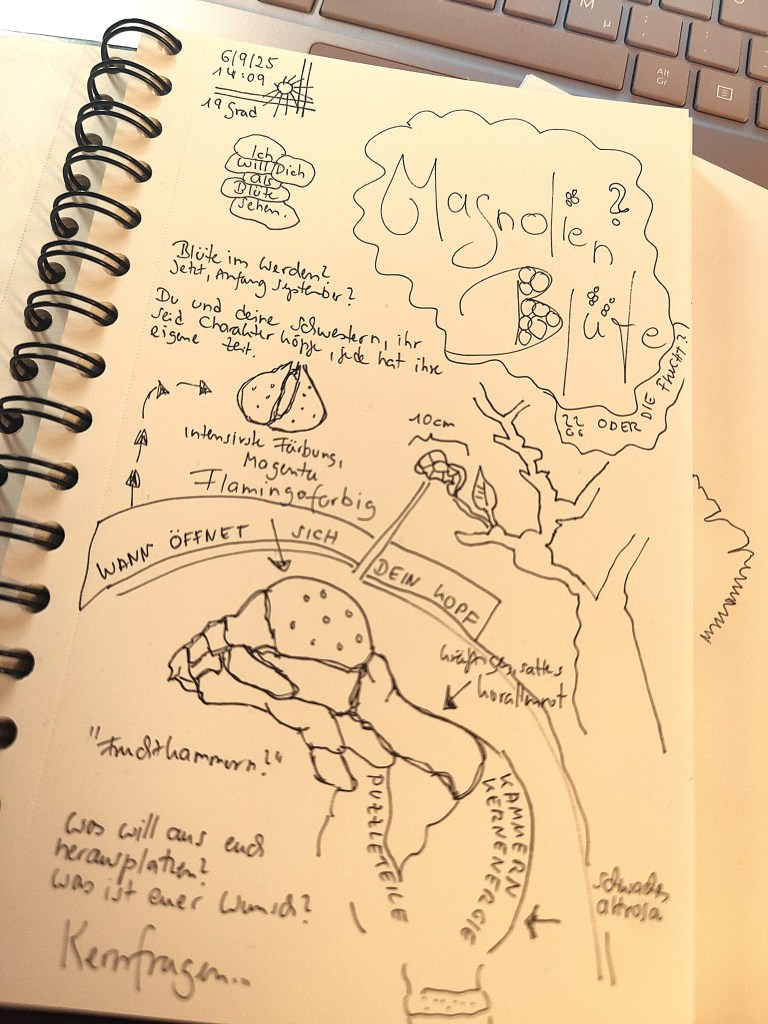 6/9/25
14:09
19 Grad
Ich
will Dich
als
Blüte
sehen.
Magnolien ?
Blüte
ODER DIE FRUCHT?
Blüte im Werden?
Jetzt, Anfang September?
Du und deine Schwestern, ihr
seid Charakterköpfe, jede hat ihre
eigene Zeit.
intensivste Färbung,
Magenta
Flamingofarbig
10cm
WANN ÖFFNET SICH DEIN KOPF
kräftiges, sattes
korallenrot
"Fruchtkammern?"
PUZZLETEILE
KAMMERN
KERNENERGIE
Was will aus euch
herausplatzen?
Was ist euer Wunsch?
Kernfragen...
schwaches
altrosa
M µ
Alt
Gr